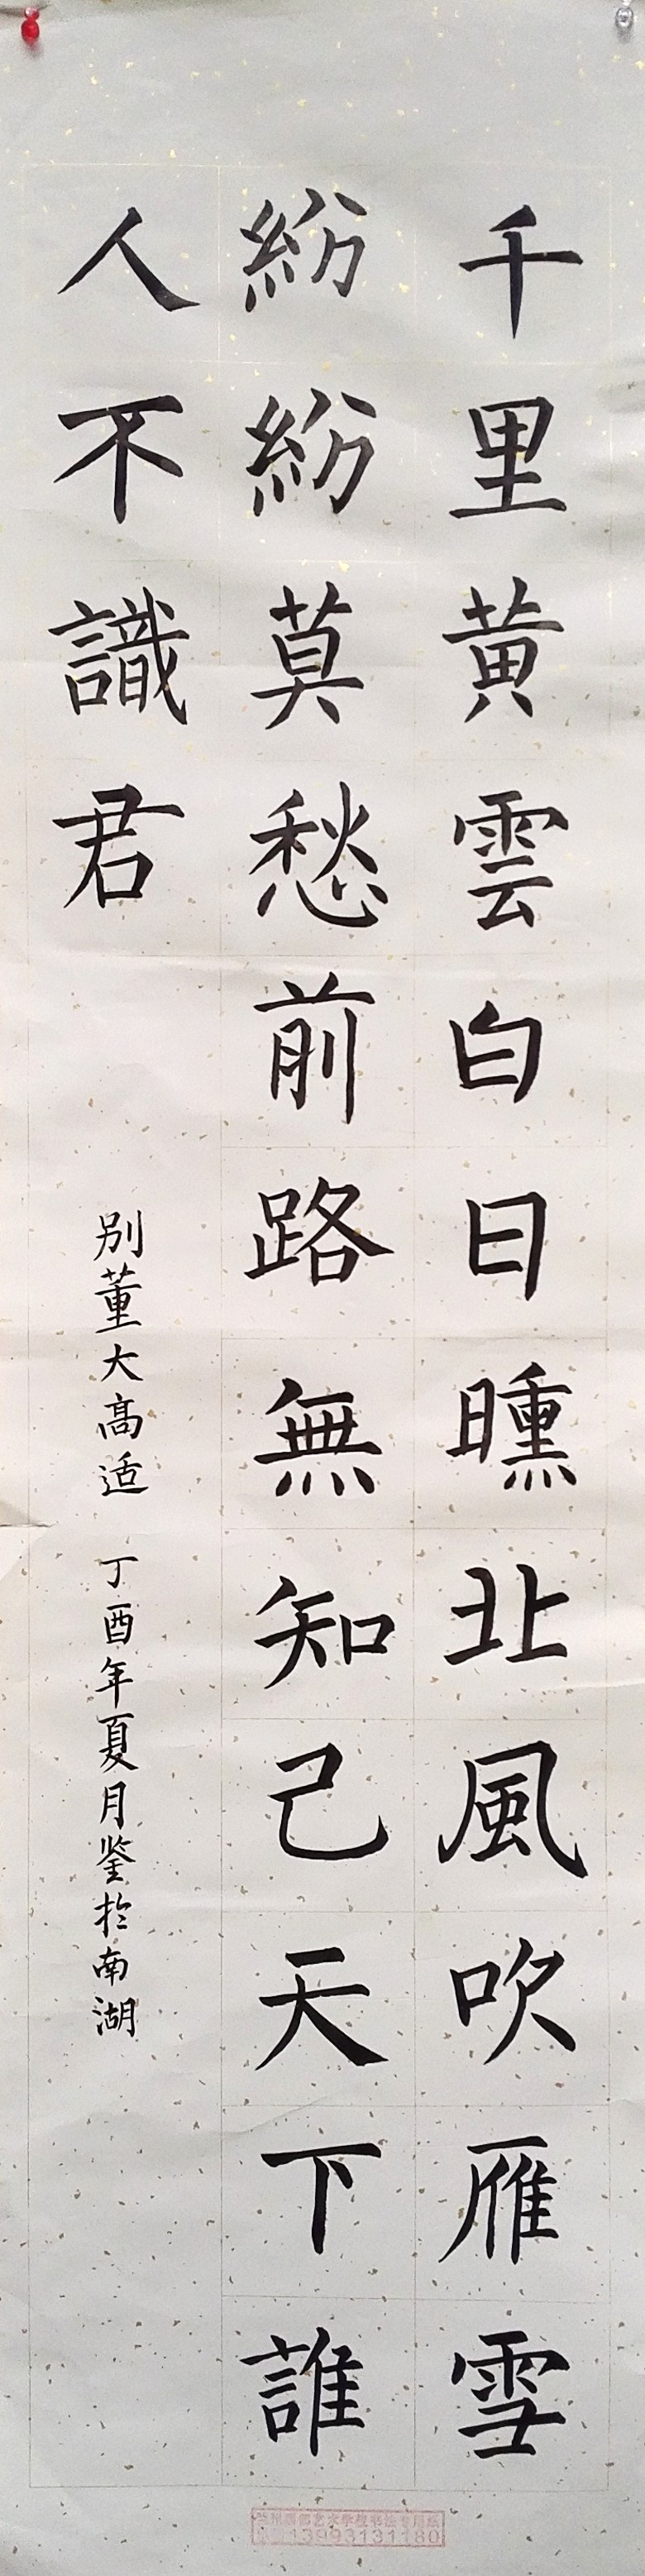 千里黄雲白日曛北風吹雁雪
紛紛莫愁前路無知己天下誰
人不識君
别董大高适 丁酉年夏月鉴於南湖
13993131180